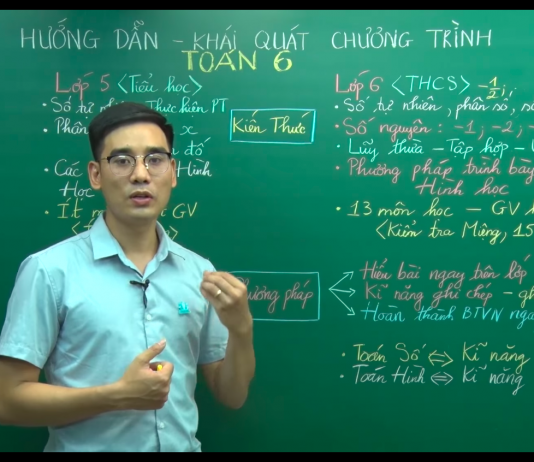 HƯỚNG DẪN - KHÁI QUÁT CHƯƠNG TRÌNH
TOÁN 6
Lớp 5 <Tiểu học>
• Số tự nhiên Thực hiện PT
• Phân x
đố
• Các Hình
Học
• Ít GV
Kiến Thức
Phương pháp
Lớp 6 <THCS> -1/2;
• Số tự nhiên, phân số,
• Số nguyên: -1; -2; -
• Lũy thừa - Tập hợp -
• Phương pháp trình bày
Hình học
• 13 môn học - GV
<Kiểm tra Miệng, 15
Hiểu bài ngay trên lớp
Kĩ năng ghi chép -
Hoàn thành BTVN
• Toán Số <=> Kĩ năng
• Toán Hình <=> Kĩ năng